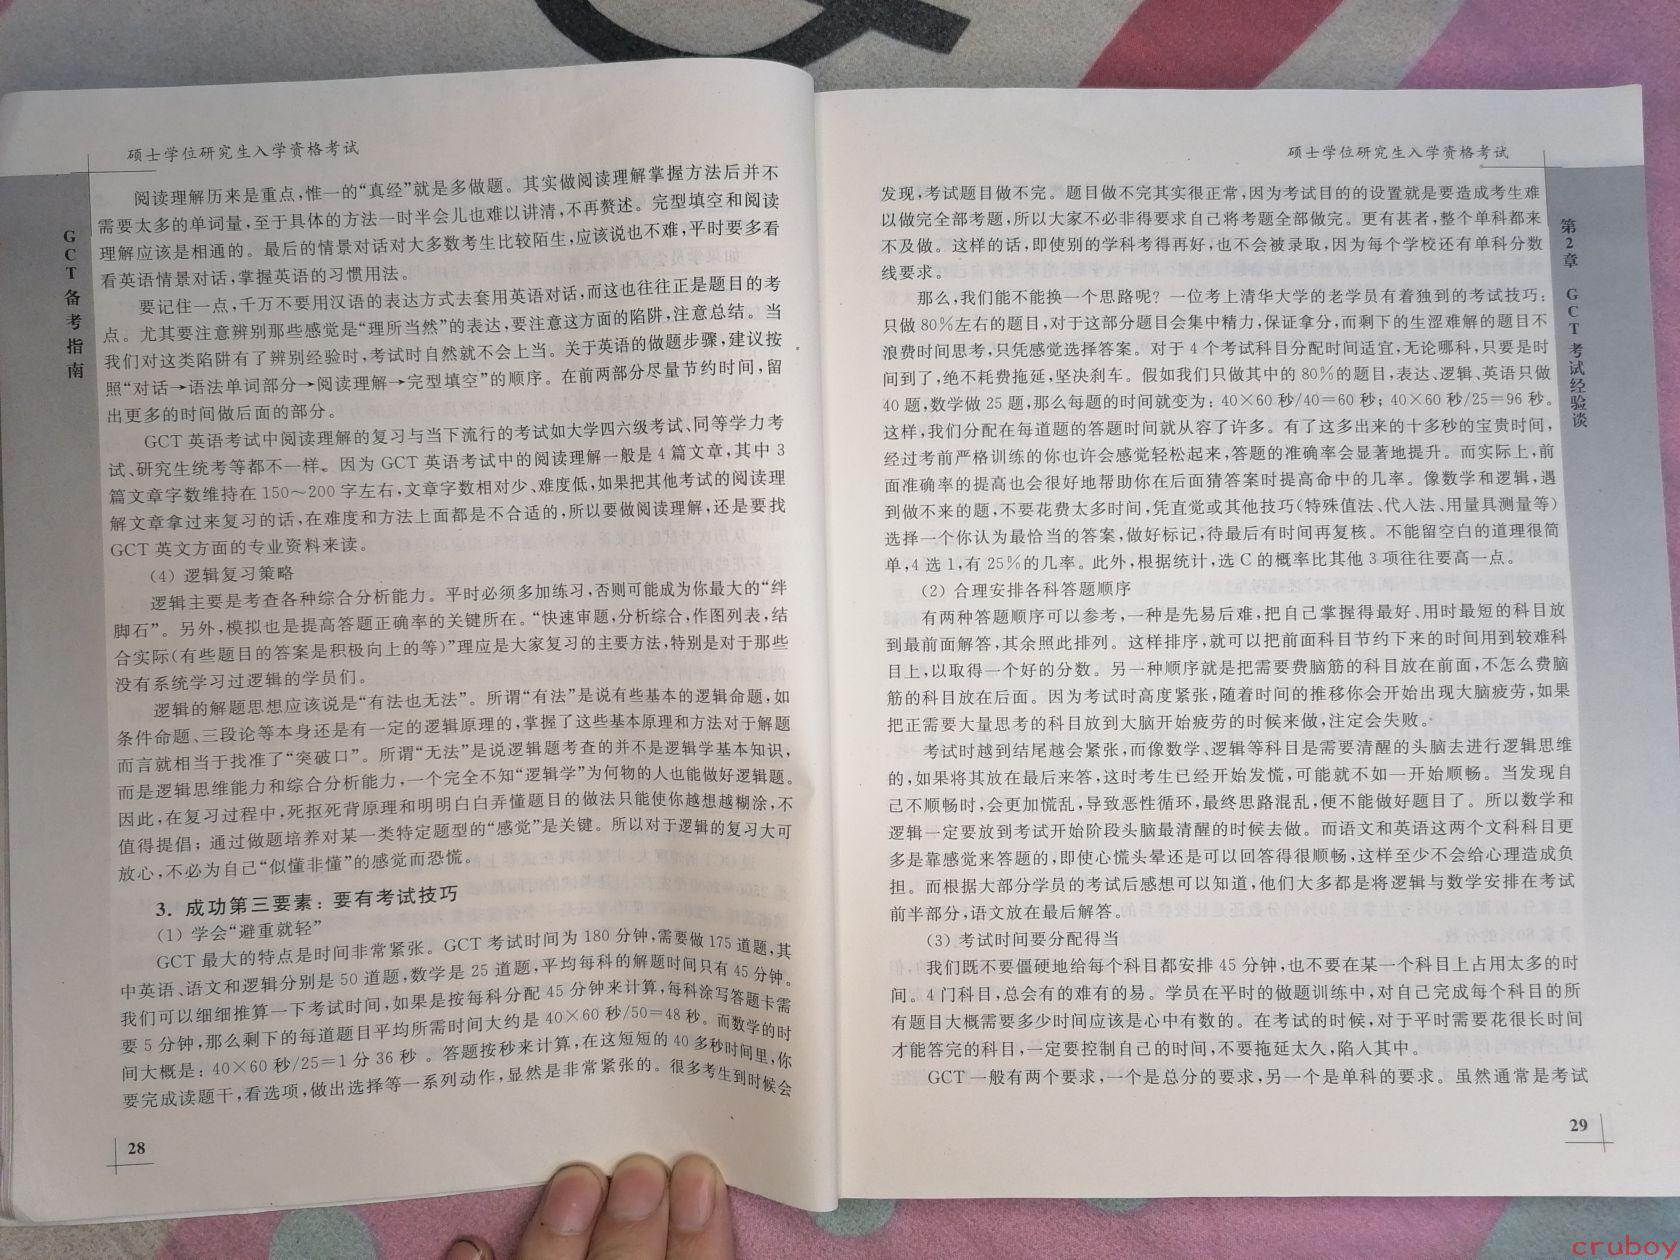 硕士学位研究生入学资格考试
GCT备考指南
阅读理解历来是重点，惟一的“真经”就是多做题。其实做阅读理解掌握方法后并不
需要太多的单词量，至于具体的方法一时半会儿也难以讲清，不再赘述。完型填空和阅读
理解应该是相通的。最后的情景对话对大多数考生比较陌生，应该说也不难，平时要多看
看英语情景对话，掌握英语的习惯用法。
要记住一点，千万不要用汉语的表达方式去套用英语对话，而这也往往正是题目的考
点。尤其要注意辨别那些感觉是“理所当然”的表达，要注意这方面的陷阱，注意总结。当
我们对这类陷阱有了辨别经验时，考试时自然就不会上当。关于英语的做题步骤，建议按
照“对话→语法单词部分→阅读理解→完型填空”的顺序。在前两部分尽量节约时间，留
出更多的时间做后面的部分。
GCT英语考试中阅读理解的复习与当下流行的考试如大学四六级考试、同等学力考
试、研究生统考等都不一样。因为GCT英语考试中的阅读理解一般是4篇文章，其中3
篇文章字数维持在150～200字左右，文章字数相对少、难度低，如果把其他考试的阅读理
解文章拿过来复习的话，在难度和方法上面都是不合适的，所以要做阅读理解，还是要找
GCT英文方面的专业资料来读。
（4）逻辑复习策略
逻辑主要是考查各种综合分析能力。平时必须多加练习，否则可能成为你最大的“绊
脚石”。另外，模拟也是提高答题正确率的关键所在。“快速审题，分析综合，作图列表，结
合实际（有些题目的答案是积极向上的等）”理应是大家复习的主要方法，特别是对于那些
没有系统学习过逻辑的学员们。
逻辑的解题思想应该说是“有法也无法”。所谓“有法”是说有些基本的逻辑命题，如
条件命题、三段论等本身还是有一定的逻辑原理的，掌握了这些基本原理和方法对于解题
而言就相当于找准了“突破口”。所谓“无法”是说逻辑题考查的并不是逻辑学基本知识，
而是逻辑思维能力和综合分析能力，一个完全不知“逻辑学”为何物的人也能做好逻辑题。
因此，在复习过程中，死抠死背原理和明明白白弄懂题目的做法只能使你越想越糊涂，不
值得提倡；通过做题培养对某一类特定题型的“感觉”是关键。所以对于逻辑的复习大可
放心，不必为自己“似懂非懂”的感觉而恐慌。
3．成功第三要素：要有考试技巧
（1）学会“避重就轻”
GCT最大的特点是时间非常紧张。GCT考试时间为180分钟，需要做175道题，其
中英语、语文和逻辑分别是50道题，数学是25道题，平均每科的解题时间只有45分钟。
我们可以细细推算一下考试时间，如果是按每科分配45分钟来计算，每科涂写答题卡需
要5分钟，那么剩下的每道题目平均所需时间大约是40×60秒/50＝48秒。而数学的时
间大概是：40×60秒/25＝1分36秒。答题按秒来计算，在这短短的40多秒时间里，你
要完成读题干，看选项，做出选择等一系列动作，显然是非常紧张的。很多考生到时候会
28
硕士学位研究生入学资格考试
第2章 GCT考试经验谈
发现，考试题目做不完。题目做不完其实很正常，因为考试目的的设置就是要造成考生难
以做完全部考题，所以大家不必非得要求自己将考题全部做完。更有甚者，整个单科都来
不及做。这样的话，即使别的学科考得再好，也不会被录取，因为每个学校还有单科分数
线要求。
那么，我们能不能换一个思路呢？一位考上清华大学的老学员有着独到的考试技巧：
只做80％左右的题目，对于这部分题目会集中精力，保证拿分，而剩下的生涩难解的题目不
浪费时间思考，只凭感觉选择答案。对于4个考试科目分配时间适宜，无论哪科，只要是时
间到了，绝不耗费拖延，坚决刹车。假如我们只做其中的80％的题目，表达、逻辑、英语只做
40题，数学做25题，那么每题的时间就变为：40×60秒/40＝60秒；40×60秒/25＝96秒。
这样，我们分配在每道题的答题时间就从容了许多。有了这多出来的十多秒的宝贵时间，
经过考前严格训练的你也许会感觉轻松起来，答题的准确率会显著地提升。而实际上，前
面准确率的提高也会很好地帮助你在后面猜答案时提高命中的几率。像数学和逻辑，遇
到做不来的题，不要花费太多时间，凭直觉或其他技巧（特殊值法、代入法、用量具测量等）
选择一个你认为最恰当的答案，做好标记，待最后有时间再复核。不能留空白的道理很简
单，4选1，有25％的几率。此外，根据统计，选C的概率比其他3项往往要高一点。
（2）合理安排各科答题顺序
有两种答题顺序可以参考，一种是先易后难，把自己掌握得最好、用时最短的科目放
到最前面解答，其余照此排列。这样排序，就可以把前面科目节约下来的时间用到较难科
目上，以取得一个好的分数。另一种顺序就是把需要费脑筋的科目放在前面，不怎么费脑
筋的科目放在后面。因为考试时高度紧张，随着时间的推移你会开始出现大脑疲劳，如果
把正需要大量思考的科目放到大脑开始疲劳的时候来做，注定会失败。
考试时越到结尾越会紧张，而像数学、逻辑等科目是需要清醒的头脑去进行逻辑思维
的，如果将其放在最后来答，这时考生已经开始发慌，可能就不如一开始顺畅。当发现自
己不顺畅时，会更加慌乱，导致恶性循环，最终思路混乱，便不能做好题目了。所以数学和
逻辑一定要放到考试开始阶段头脑最清醒的时候去做。而语文和英语这两个文科科目更
多是靠感觉来答题的，即使心慌头晕还是可以回答得很顺畅，这样至少不会给心理造成负
担。而根据大部分学员的考试后感想可以知道，他们大多都是将逻辑与数学安排在考试
前半部分，语文放在最后解答。
（3）考试时间要分配得当
我们既不要僵硬地给每个科目都安排45分钟，也不要在某一个科目上占用太多的时
间。4门科目，总会有的难有的易。学员在平时的做题训练中，对自己完成每个科目的所
有题目大概需要多少时间应该是心中有数的。在考试的时候，对于平时需要花很长时间
才能答完的科目，一定要控制自己的时间，不要拖延太久，陷入其中。
GCT一般有两个要求，一个是总分的要求，另一个是单科的要求。虽然通常是考试
29
cruboy